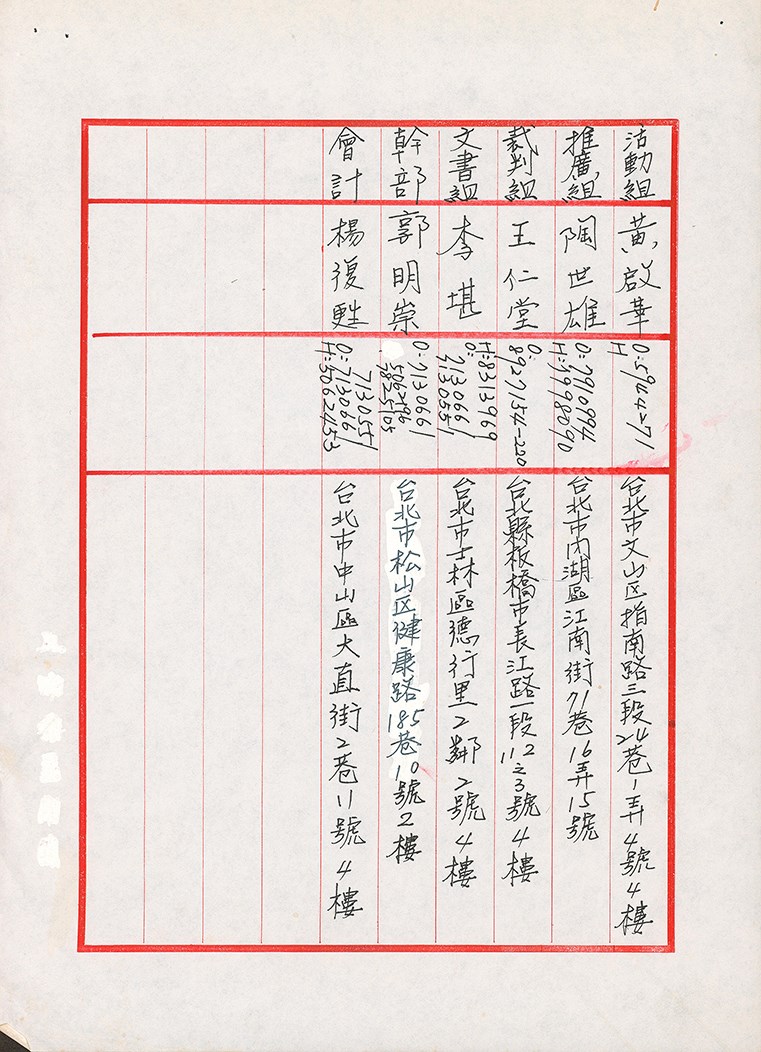 活動組 黃啟華 O:5944271 H 台北市文山区指南路三段24巷1弄4號4樓
推廣組 陶世雄 O:7910994 H:7998090 台北市內湖區江南街71巷16弄15號
裁判組 王仁堂 O:8927154-220 台北縣板橋市長江路一段112之3號4樓
文書組 李堪 H:8313969 O:7130661 7130551 台北市士林區德行里2鄰2號4樓
幹部 郭明崇 O:7130661 台北市松山区健康路185巷10號2樓
會計 楊復甦 7130551 O:7130661 H:5062453 台北市中山區大直街2巷11號4樓